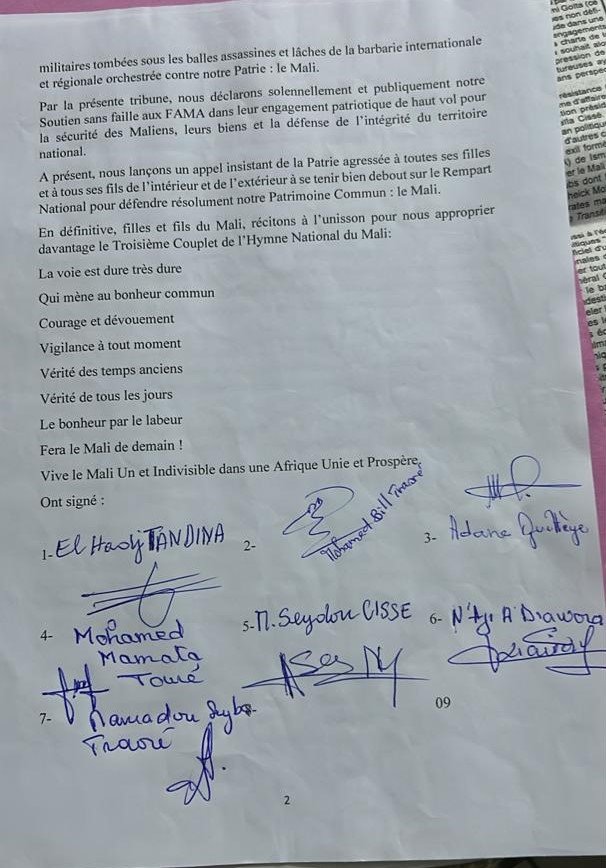 militaires tombées sous les balles assassines et lâches de la barbarie internationale
et régionale orchestrée contre notre Patrie : le Mali.
Par la présente tribune, nous déclarons solennellement et publiquement notre
Soutien sans faille aux FAMA dans leur engagement patriotique de haut vol pour
la sécurité des Maliens, leurs biens et la défense de l'intégrité du territoire
national.
A présent, nous lançons un appel insistant de la Patrie agressée à toutes ses filles
et à tous ses fils de l'intérieur et de l'extérieur à se tenir bien debout sur le Rempart
National pour défendre résolument notre Patrimoine Commun : le Mali.
En définitive, filles et fils du Mali, récitons à l'unisson pour nous approprier
davantage le Troisième Couplet de l'Hymne National du Mali:
La voie est dure très dure
Qui mène au bonheur commun
Courage et dévouement
Vigilance à tout moment
Vérité des temps anciens
Vérité de tous les jours
Le bonheur par le labeur
Fera le Mali de demain !
Vive le Mali Un et Indivisible dans une Afrique Unie et Prospère.
Ont signé :
1- El Hadj TANDINA
2- Mohamed Bill Traoré
3- Adane
4- Mohamed
Mamata
Touré
5- M. Seydou CISSE
6- N'Tji A Diawara
7- Mamadou
Traoré
8-
09
2